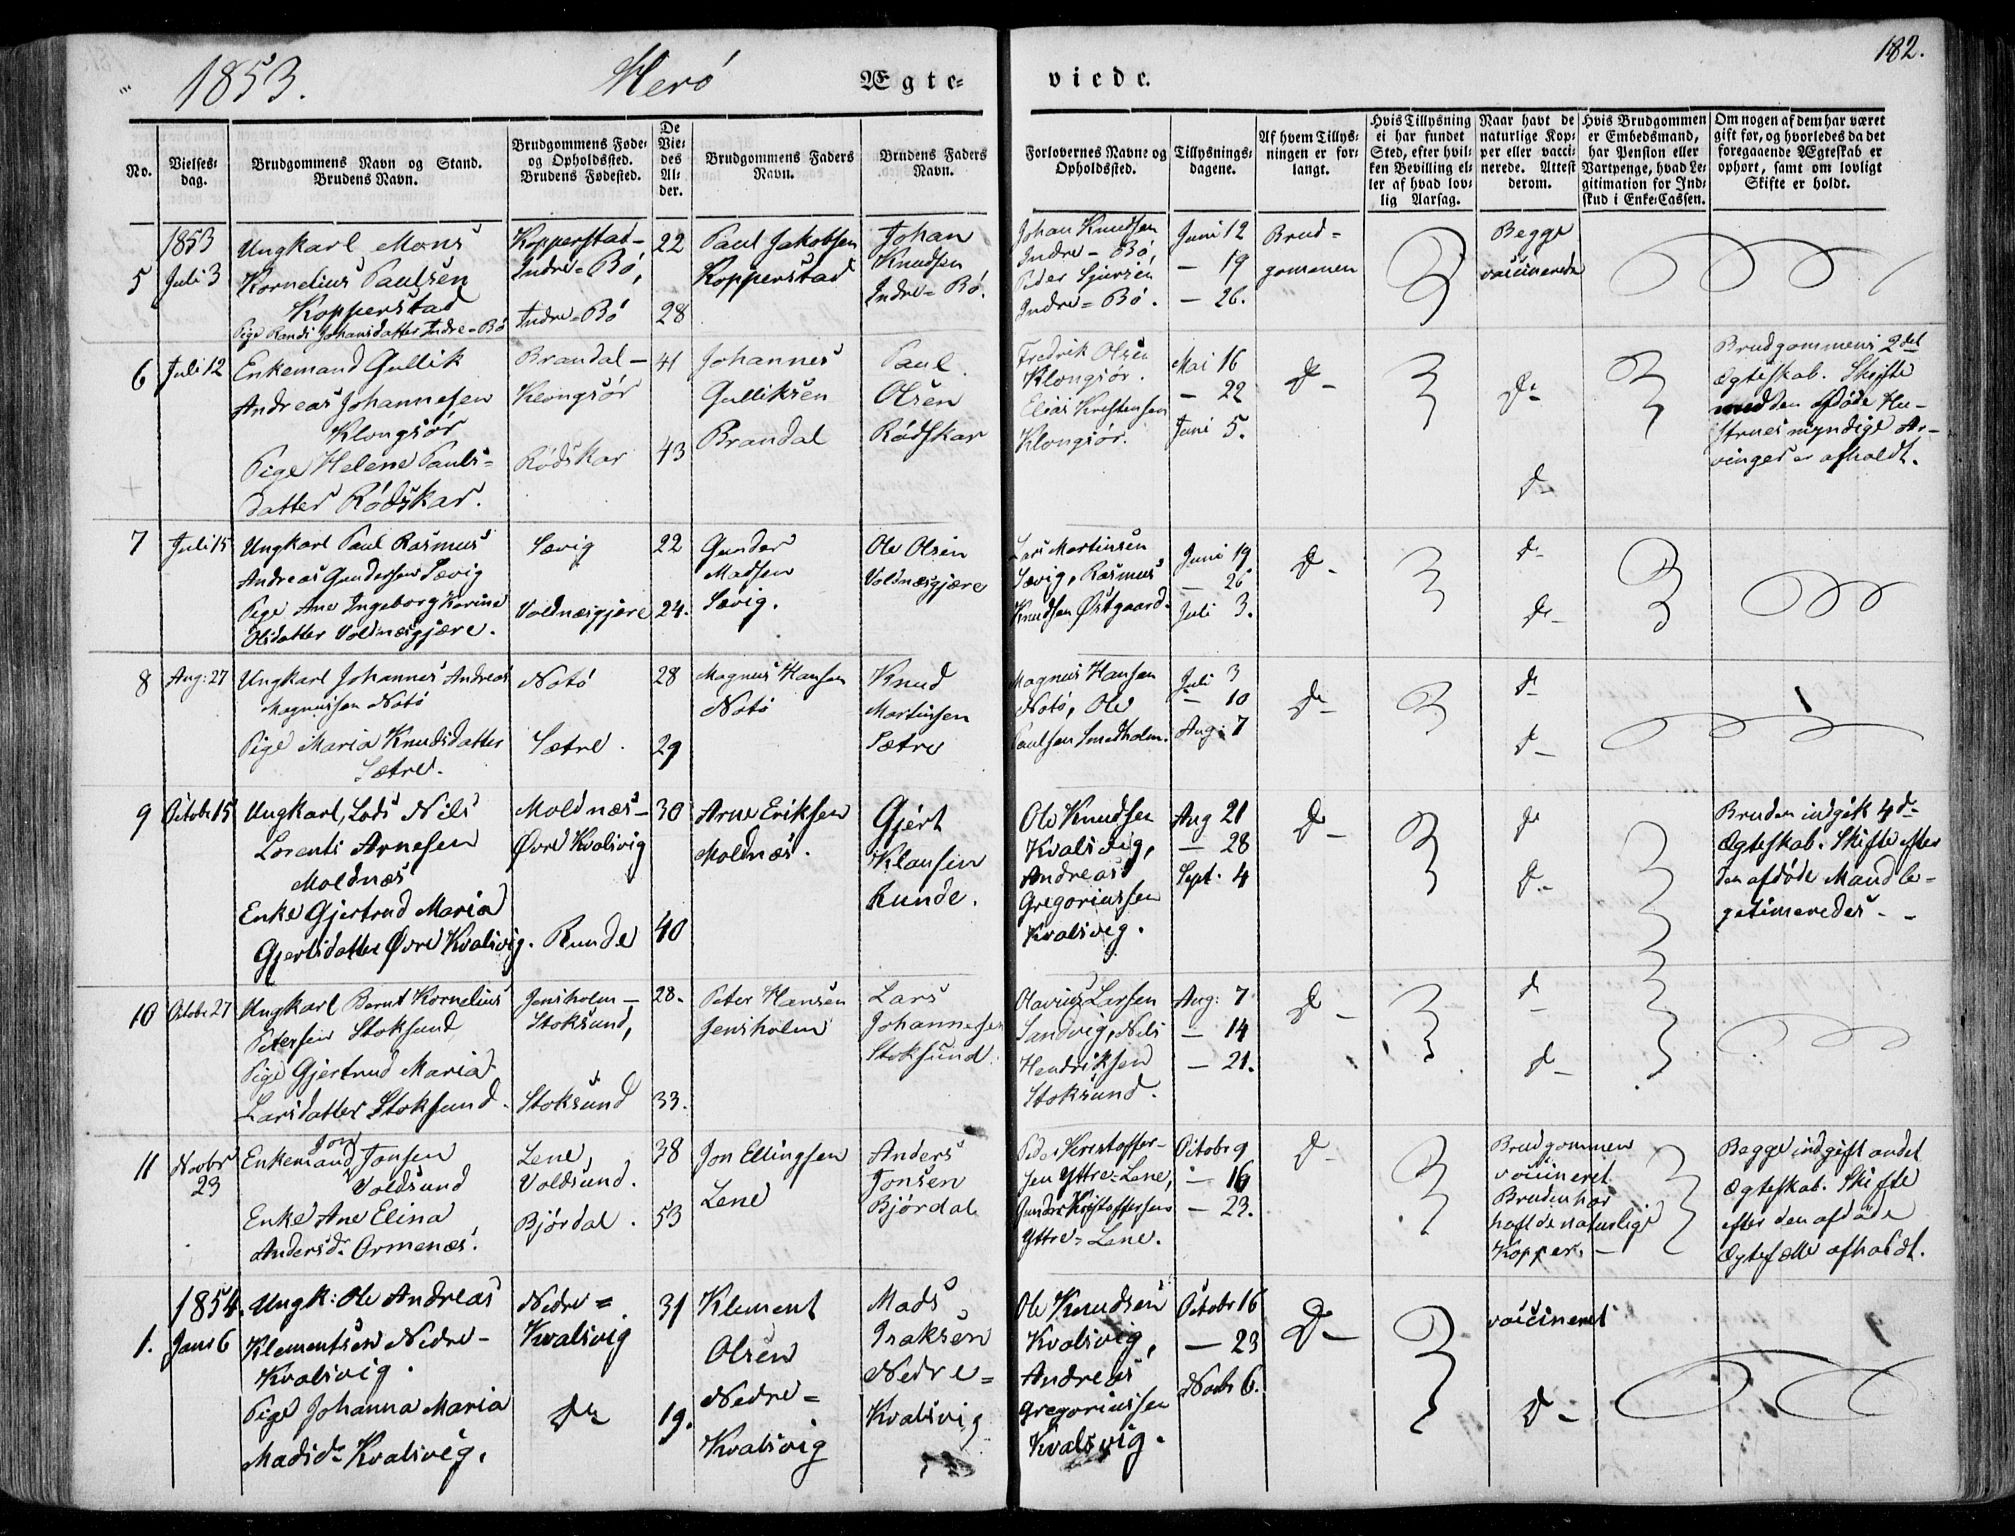 1853. Herö Ægte- viede. 182.
No.
Vielses-
dag.
Brudgommens Navn og Stand.
Brudens Navn.
Brudgommens Føde-
og Opholdssted.
Brudens Fødested.
De
Vie-
des
Al-
der.
Brudgommens Faders
Navn.
Brudens Faders
Navn.
Forlovernes Navne og
Opholdssted.
Tillysnings-
dagene.
Af hvem Tillys-
ningen er for-
langt.
Hvis Tillysning
ei har fundet
Sted, efter hvil-
ken Bevilling el-
ler af hvad lov-
lig Aarsag.
Naar havt de
naturlige Kop-
per eller vacci-
nerede. Attest
derom.
Hvis Brudgommen
er Embedsmand,
har Pension eller
Vartpenge, hvad Le-
gitimation for Ind-
skud i Enke-Cassen.
Om nogen af dem har været
gift før, og hvorledes da det
foregaaende Ægteskab er
ophørt, samt om lovligt
Skifte er holdt.
5
1853
Juli 3
Ungkarl Mons
Kornelius Paulsen
Kopperstad
Pige Randi Johansdatter Indre-Bö
Kopperstad-
Indre-Bö,
Indre-Bö
22
28
Paul Jakobsen
Kopperstad
Johan
Knudsen
Indre-Bö.
Johan Knudsen
Indre-Bö,
Peder Sjursen
Indre-Bö.
Juni 12
— 19
— 26.
Brud-
gommen
Begge
vaccinerede
6
Juli 12
Enkemand Gullik
Andreas Johannesen
Klongsör
Pige Helene Pauls-
datter Rödskar.
Brandal-
Klongsör
Rödskar
41
43
Johannes
Gulliksen
Brandal
Paul
Olsen
Rödskar
Fredrik Olsen
Klongsör.
Elias Kristensen
Klongsör.
Mai 16
— 22
Juni 5.
Do-
Do-
Do-
Brudgommens 2det
Ægteskab. Skifte
med den afdöde Hu-
strues myndige Ar-
vinger er afholdt.
7
Juli 15
Ungkarl Paul Rasmus
Andreas Gundersen Sævig
Pige Ane Ingeborg Karine
Olsdatter Voldnæsgjære.
Sævig
Voldnæsgjære
22
24.
Gunder
Madsen
Sævig.
Ole Olsen
Voldnæsgjære
Lars Martinsen
Sævig, Rasmus
Knudsen Østgaard.
Juni 19
— 26
Juli 3.
Do-
Do-
Do-
8
Aug: 27
Ungkarl Johannes Andreas
Magnussen Notö
Pige Maria Knudsdatter
Sætre.
Notö
Sætre.
28
29
Magnus Hansen
Notö
Knud
Martinsen
Sætre
Magnus Hansen
Notö, Ole
Paulsen Smedholm.
Juli 3
— 10
Aug: 7
Do-
Do
Do-
9
Octobr 15
Ungkarl, Lods Nils
Lorents Arnesen
Moldnæs
Enke Gjertrud Maria
Gjertsdatter Øvre Kvalsvig.
Moldnæs-
Øvre Kvalsvig
Runde
30
40
Arne Eriksen
Moldnæs.
Gjert
Klausen
Runde.
Ole Knudsen
Kvalsvig,
Andreas
Gregoriussen
Kvalsvig.
Aug 21
— 28
Sept. 4
Do-
Do
Do-
Bruden indgik 4de
Ægteskab. Skifte efter
den afdöde Mand le-
gitimeredes.
10
Octobr 27
Ungkarl Bernt Kornelius
Petersen Stoksund
Pige Gjertrud Maria
Larsdatter Stoksund.
Jensholm-
Stoksund,
Stoksund
28.
33.
Peter Hansen
Jensholm
Lars
Johannesen
Stoksund.
Olavius Larsen
Sandvig, Nils
Hendriksen
Stoksund.
Aug: 7
— 14
— 21.
Do-
Do-
Do-
11
Novbr
23
Enkemand Jon Jonsen
Voldsund
Enke Ane Elina
Andersdr Ormenæs.
Lene,
Voldsund.
Björdal.
38
53
Jon Ellingsen
Lene
Anders
Jonsen
Björdal
Peder Kristoffer-
sen Yttre-Lene,
Gunder Kristoffersen
Yttre-Lene.
Octobr 9
— 16
— 23.
Do-
Brudgommen
vaccineret.
Bruden har
haft de naturlige
Kopper.
Begge indgift andet
Ægteskab. Skifte
efter den afdöde
Ægtefælle afholdt.
1.
1854.
Janr 6
Ungk: Ole Andreas
Klementsen Nedre-
Kvalsvig.
Pige Johanna Maria
Madsdr Kvalsvig.
Nedre-
Kvalsvig
Do
31
19.
Klement
Olsen
Nedre-
Kvalsvig
Mads
Isaksen
Nedre-
Kvalsvig
Ole Knudsen
Kvalsvig,
Andreas
Gregoriussen
Kvalsvig.
Octobr 16
— 23
Novbr 6.
Do-
vaccineret
Do-